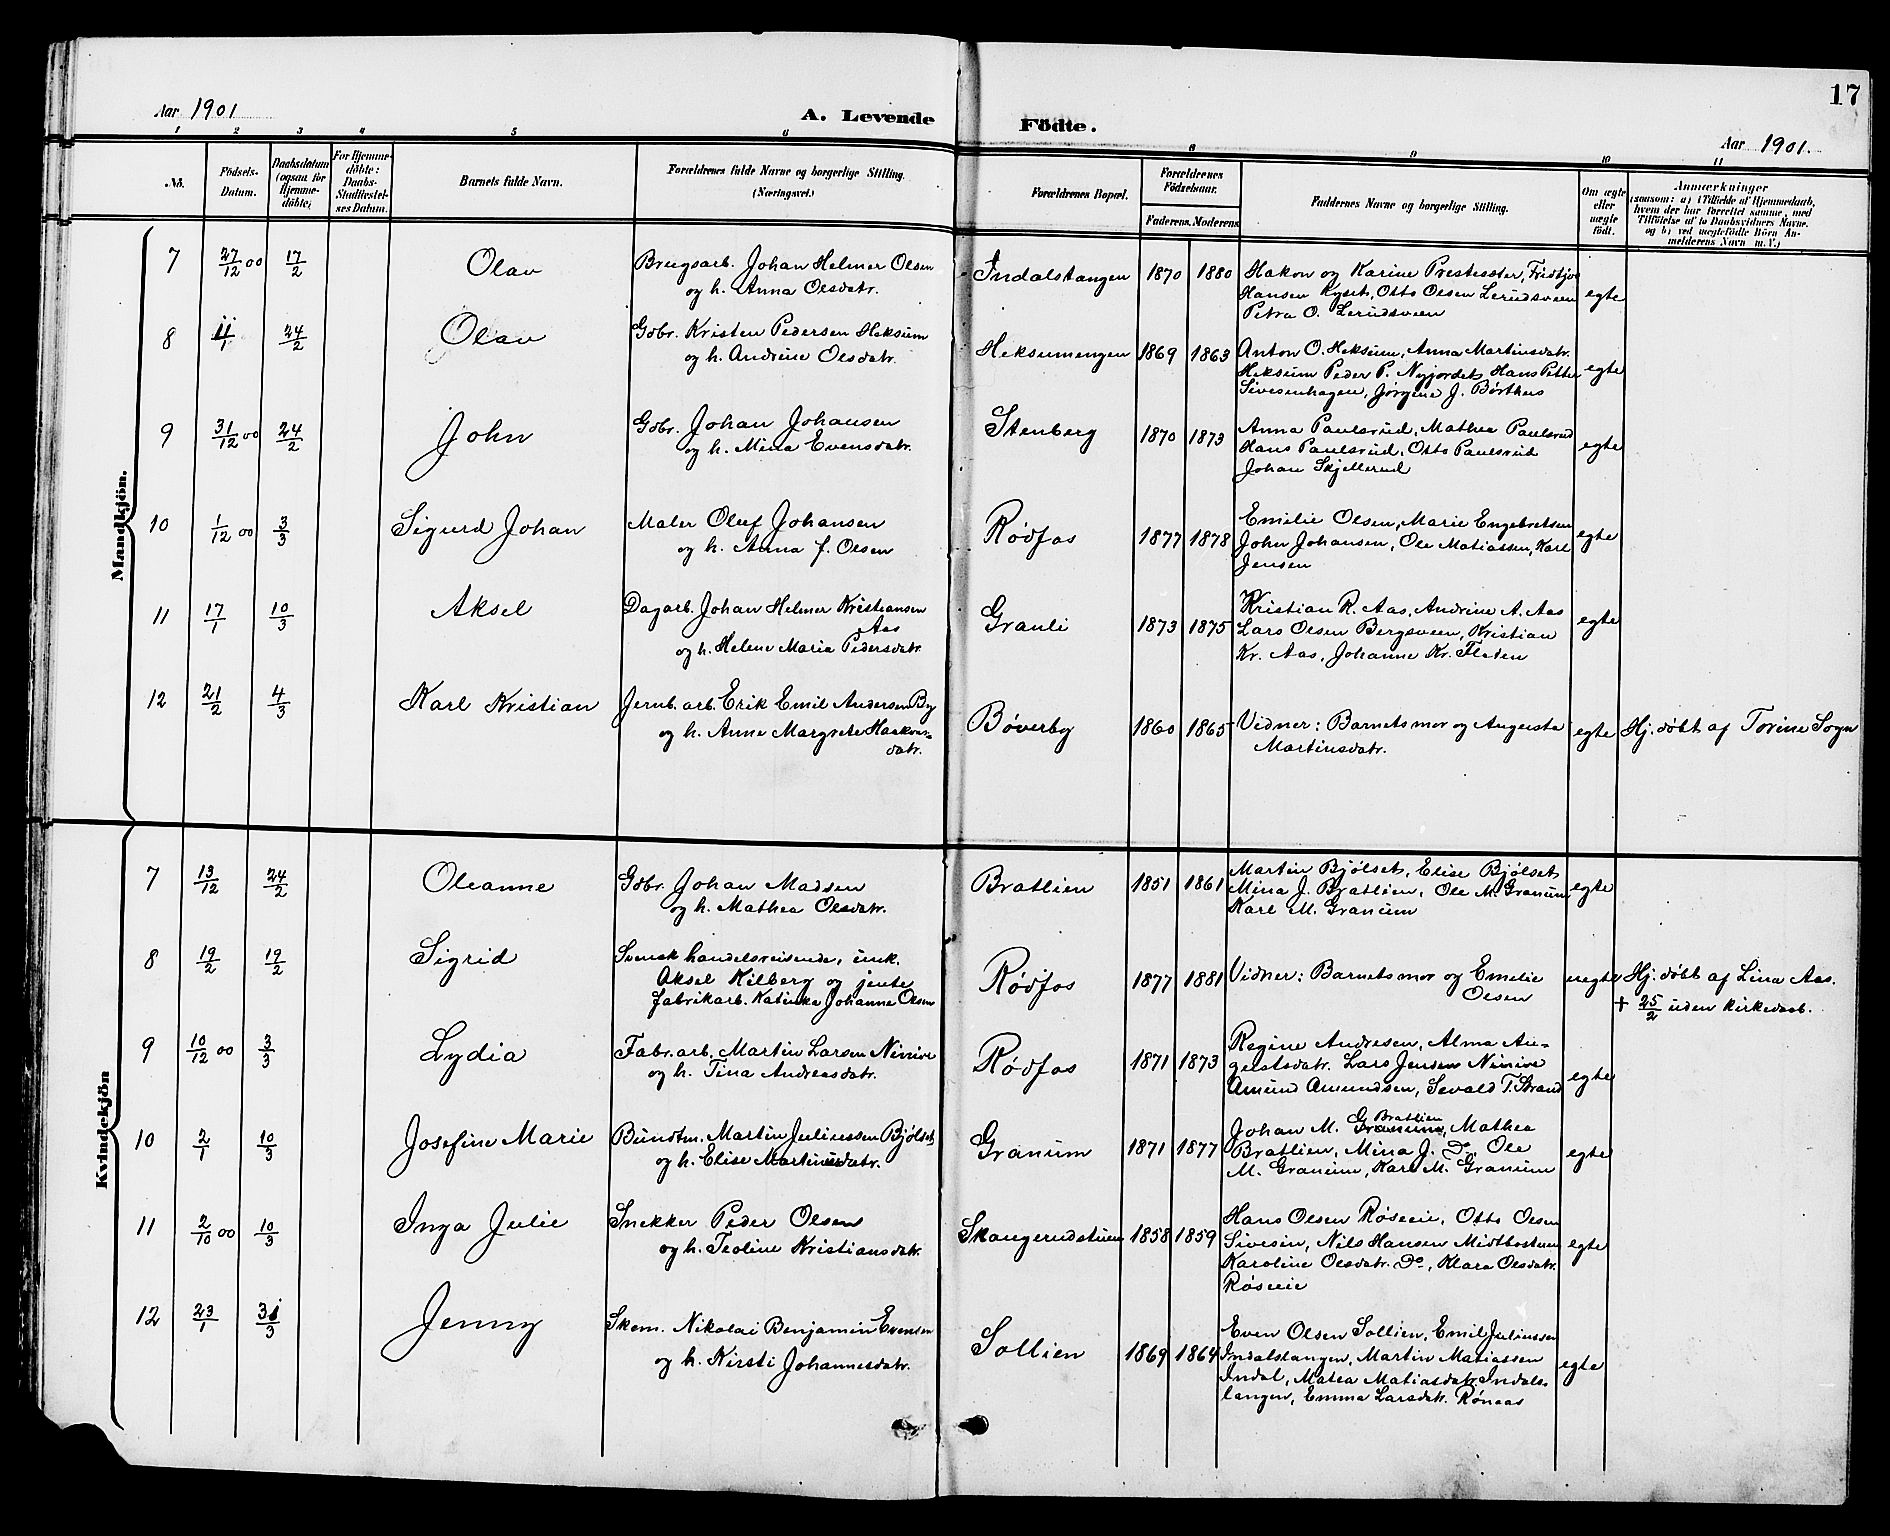 17
Aar 1901
A. Levende Födte.
Aar 1901.
1 2 3 4 5 6 8 9 10 11
No.
Födsels-
Datum.
Daabsdatum
(ogsaa for
Hjemme-
döbte)
For Hjemme-
döbte:
Daabs-
Stadfæstel-
ses Datum.
Barnets fulde Navn.
Forældrenes fulde Navne og borgerlige Stilling.
(Næringsvei.)
Forældrenes Bopæl.
Forældrenes
Födselsaar.
Faderens. Moderens.
Faddernes Navne og borgerlige Stilling.
Om ægte
eller
uægte
födt.
Anmærkninger
(saasom: a) i Tilfælde af Hjemmedaab,
hvem der har forrettet samme, med
Tilföielse af to Daabsvidners Navne.
og b) ved uægtefödte Börn An-
melderens Navn m. V.)
Mandkjön.
7 27/12 00 17/2 Olav
Brugsarb. Johan Helmer Olsen
og h. Anna Olsdatr.
Indalstangen 1870 1880
Hakon og Karine Prestesæter, Fridtjov
Hansen Kyset, Otto Olsen Lerudsveen
Petra O. Lerudsveen
egte
8 4/1 24/2 Olav
Gbr. Kristen Pedersen Heksum
og h. Andrine Olsdatr.
Heksumengen 1869 1863
Anton O. Heksum, Anna Martinsdatr.
Heksum Peder P. Nyjordet, Hans Petter
Sivesenhagen, Jørgine J. Børthus
egte
9 31/12 00 24/2 John
Gbr. Johan Johansen
og h. Mina Evensdatr.
Stenberg 1870 1873
Anna Paulsrud, Mathea Paulsrud
Hans Paulsrud, Otto Paulsrud
Johan Skjellerud
egte
10 1/12 00 3/3 Sigurd Johan
Maler Oluf Johansen
og h. Anna f. Olsen
Rødfos 1877 1878
Emilie Olsen, Marie Engebretsen
John Johansen, Ole Matiassen, Karl
Jensen
egte
11 17/1 10/3 Aksel
Dagarb. Johan Helmer Kristiansen
Aas
og h. Helene Marie Pedersdatr.
Granli 1873 1875
Kristian R. Aas, Andrine A. Aas
Lars Olsen Bergsveen, Kristian
Kr. Aas, Johanne Kr. Flaten
egte
12 21/2 4/3 Karl Kristian
Jernb. arb. Erik Emil Andersen By
og h. Anne Margrete Haakons-
datr.
Bøverby 1860 1865
Vidner: Barnets mor og Augusta
Martinsdatr.
egte
Hj. døbt af Torine Sogn
Kvindekjön
7 13/12 24/2 Oleanne
Gbr. Johan Madsen
og h. Mathea Olsdatr.
Bratlien 1851 1861
Martin Bjølset, Elise Bjølset
Mina J. Bratlien, Ole M. Granum,
Karl M. Granum
egte
8 19/2 19/2 Sigrid
Svensk handelsreisende, unk.
Aksel Kilberg og jente
fabrikarb. Katinka Johanne Olsen
Rødfos 1877 1881
Vidner: Barnets mor og Emelie
Olsen
uegte
Hj. døbt af Lina Aas.
+ 25/2 uden kirkedaab.
9 10/12 00 3/3 Lydia
Fabr. arb. Martin Larsen Ninive
og h. Tina Andreasdatr.
Rødfos 1871 1873
Regine Andresen, Alma Au-
gustsdatr. Lars Jensen Ninive
Amund Amundsen, Sevald T. Strand
egte
10 2/1 10/3 Josefine Marie
Bundtm. Martin Juliussen Bjølset
og h. Elise Martinusdatr.
Granum 1871 1877
Johan M. Granum Bratlien, Mathea
Bratlien, Mina J. Do, Ole
M. Granum, Karl M. Granum
egte
11 2/10 00 10/3 Inga Julie
Snekker Peder Olsen
og h. Teoline Kristiansdatr.
Skaugerudstuen 1858 1859
Hans Olsen Røseie, Otto Olsen
Sivesin, Nils Hansen Midtbostuen
Karoline Olsdatr. Do, Klara Olsdatr.
Røseie
egte
12 23/1 31/3 Jenny
Skom. Nikolai Benjamin Evensen
og h. Kirsti Johannesdatr.
Sollien 1869 1864
Even Olsen Sollien, Emil Juliussen
Indalstangen, Martin Matiassen
Indal, Matea Matiasdatr. Indals-
tangen, Emma Larsdatr. Røneas
egte